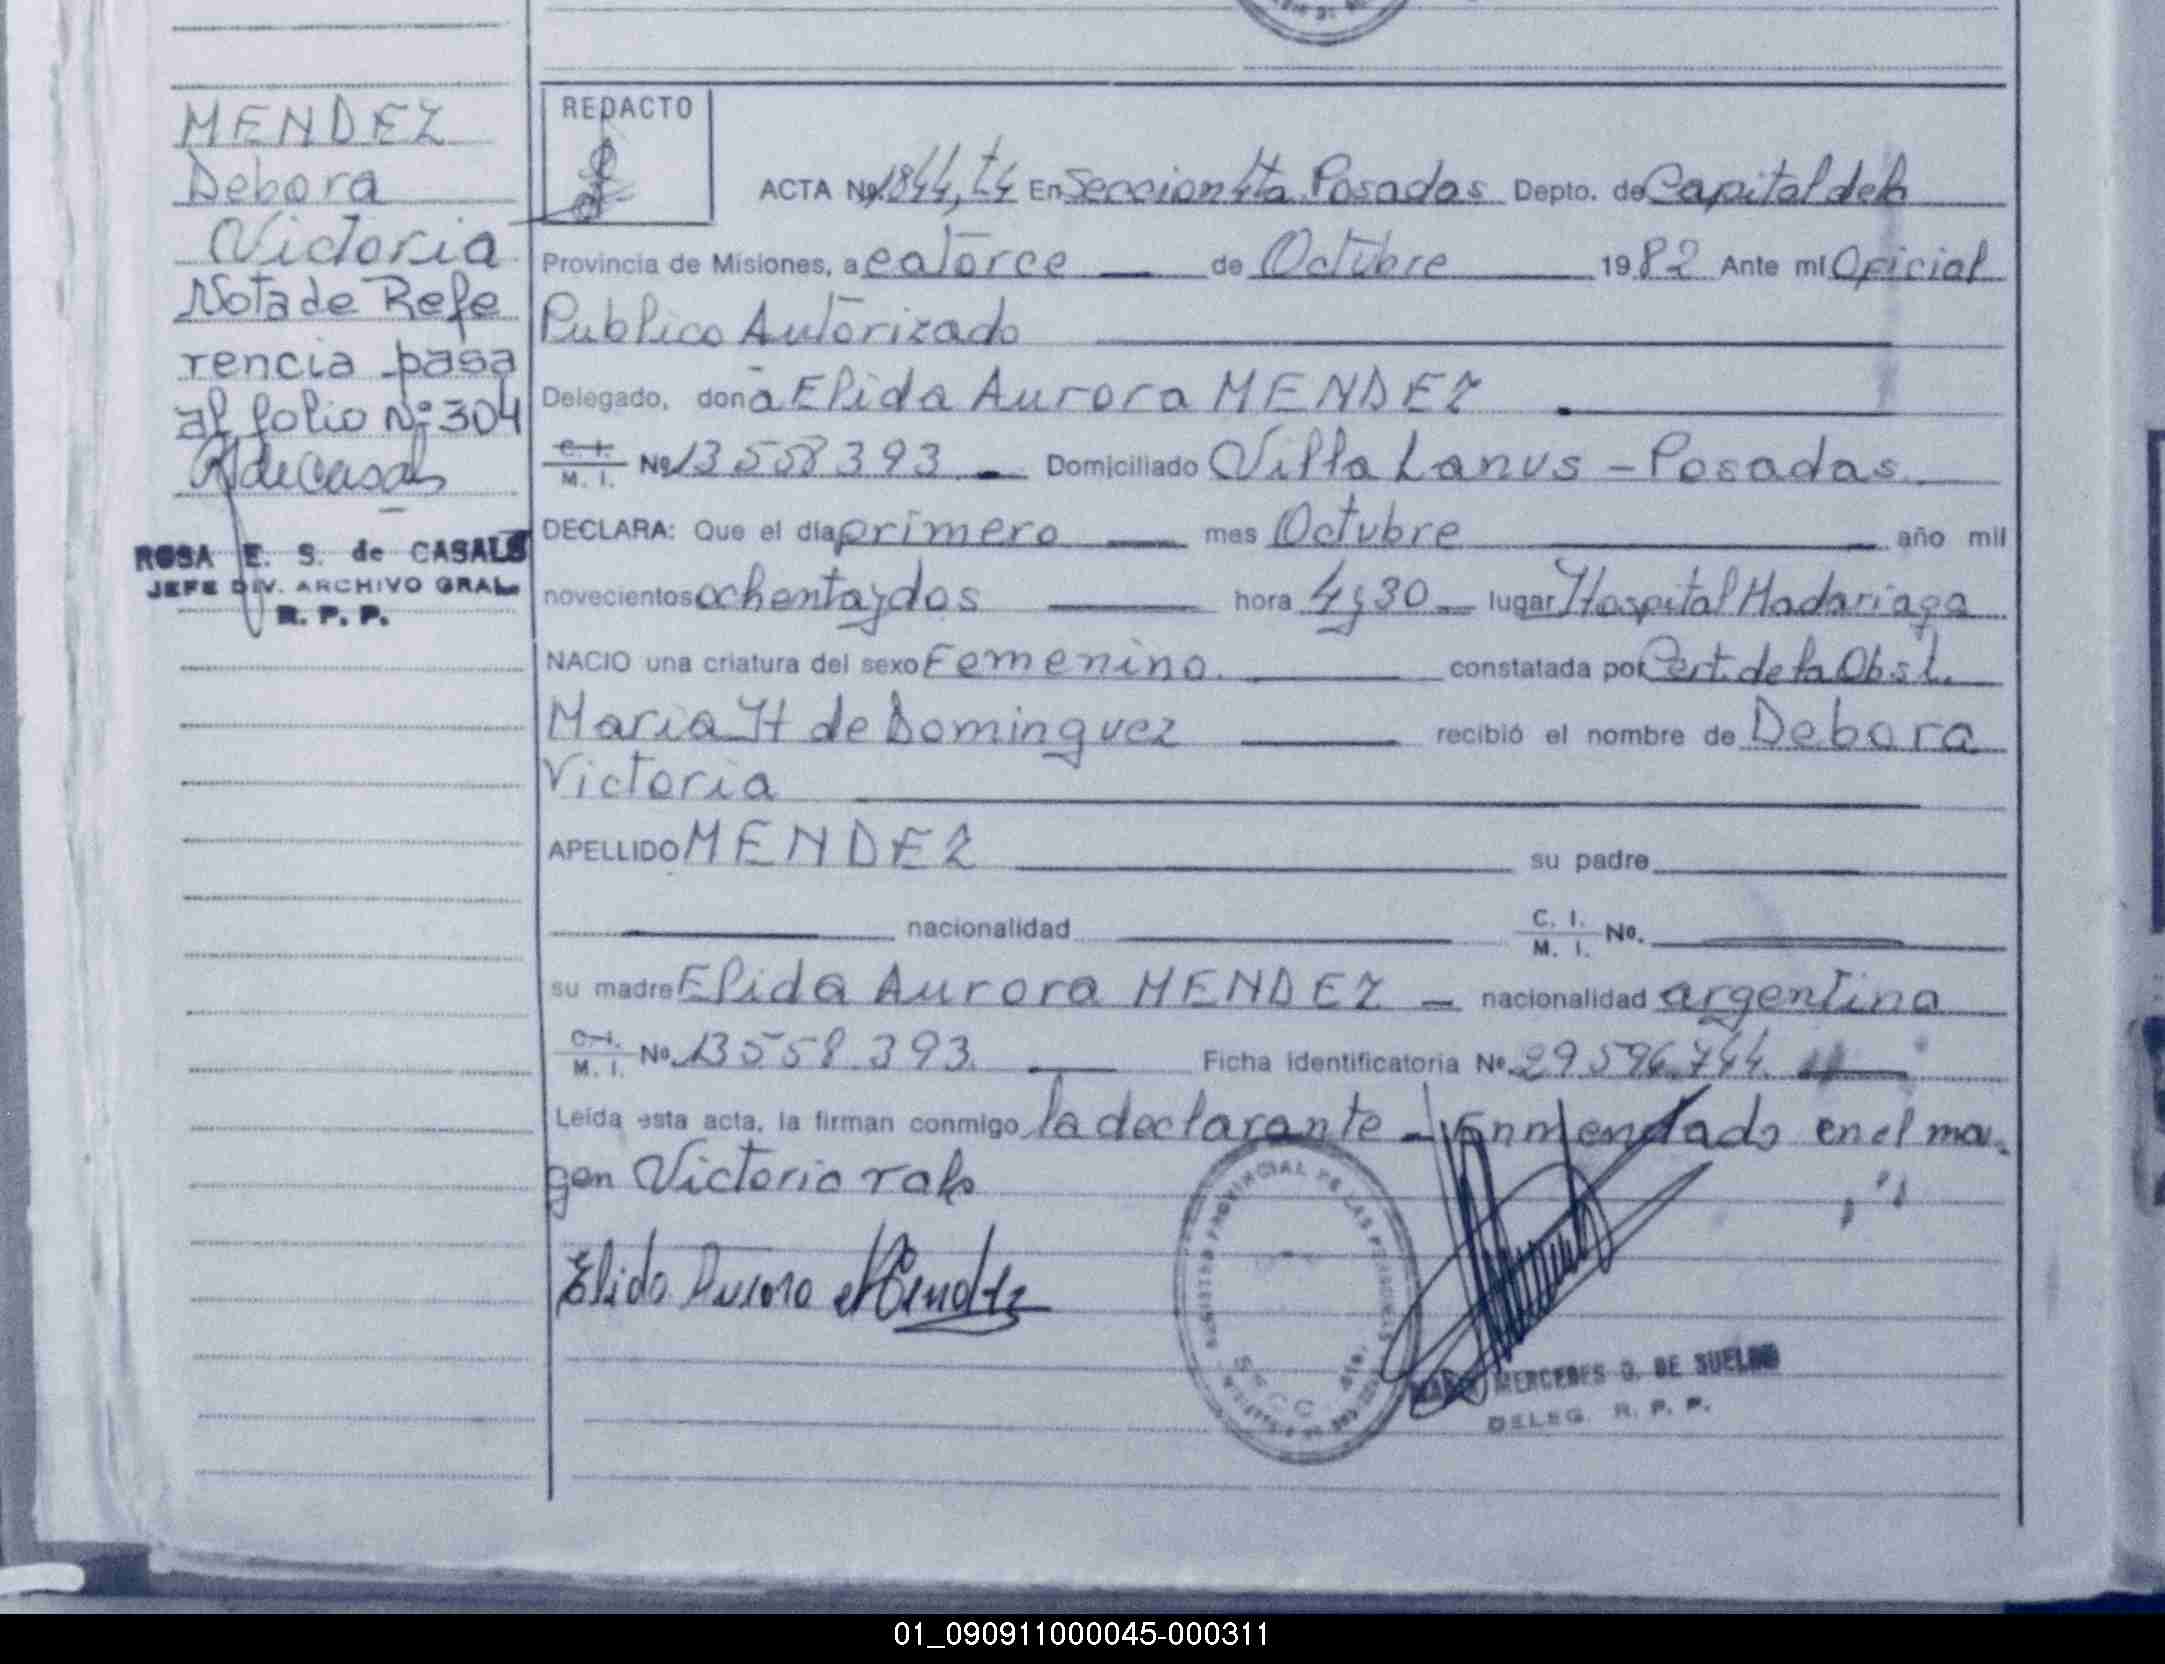 MENDEZ
Debora
Victoria
Nota de Refe
rencia pasa
al folio Nº 304
R de Casals
ROSA E. S. de CASALS
JEFE DIV. ARCHIVO GRAL.
R. P. P.
REDACTO
ACTA Nº 1844, t4 En Seccion 4ta Posadas Depto. de Capital de la
Provincia de Misiones, a catorce de Octubre 1982 Ante mí Oficial
Publico Autorizado
Delegado, doña Elida Aurora MENDEZ
C. I. / M. I. Nº 13558393 Domiciliado Villa Lanus - Posadas
DECLARA: Que el día primero mes Octubre año mil
novecientos ochenta y dos hora 4 y 30 lugar Hospital Madariaga
NACIO una criatura del sexo Femenino constatada por Cert. de la Obst.
Maria H de Dominguez recibió el nombre de Debora
Victoria
APELLIDO MENDEZ su padre
nacionalidad C. I. / M. I. No.
su madre Elida Aurora MENDEZ - nacionalidad argentina
C. I. / M. I. No. 13558393 Ficha identificatoria Nº 29.596.744
Leída esta acta, la firman conmigo la declarante - Enmendado en el mar
gen Victoria vale
Elida Aurora Mendez
REGISTRO PROVINCIAL DE LAS PERSONAS
MERCEDES G. DE SUELDO
DELEG. R. P. P.
01_090911000045-000311